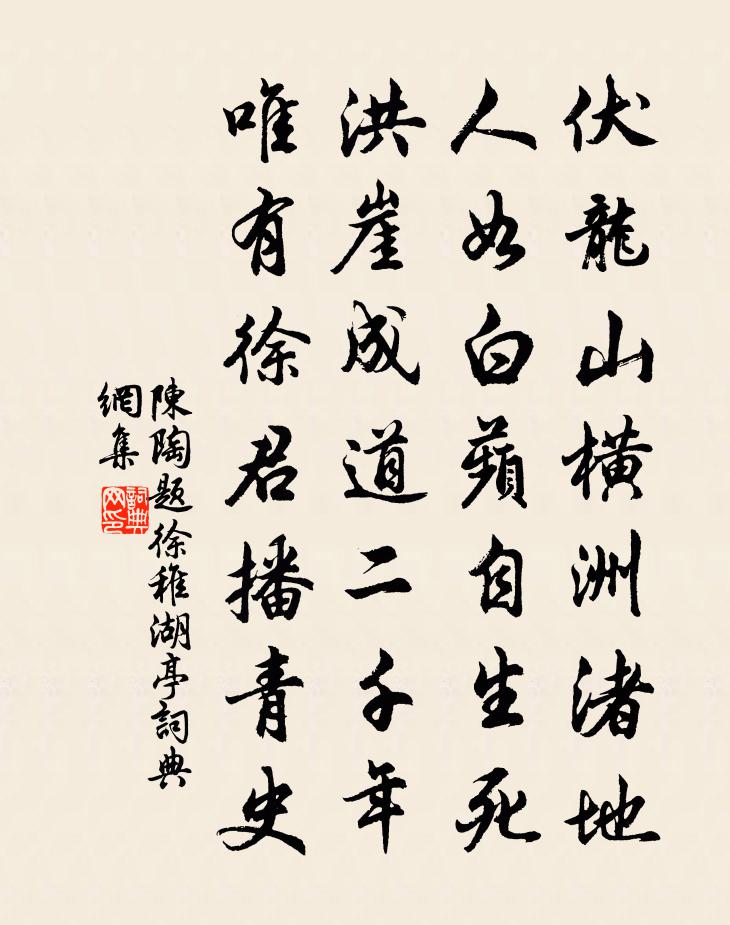 伏龍山橫洲渚地
人如白蘋自生死
洪崖成道二千年
唯有徐君播青史
陳陶題徐稚湖亭詞典
網集
詞典
网印